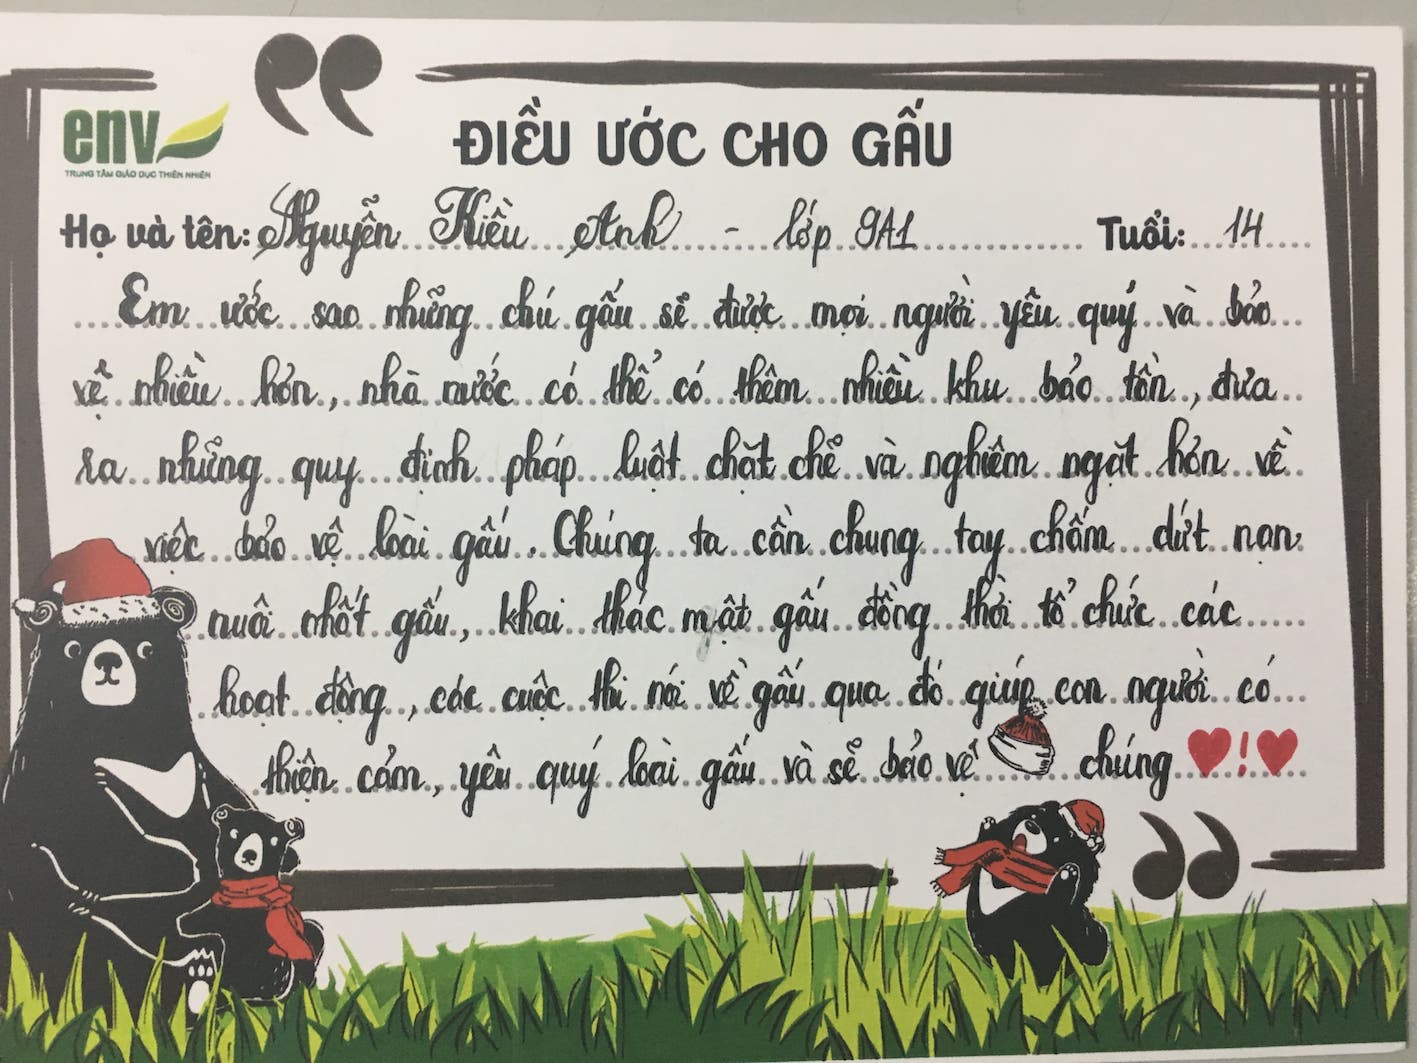 env
TRUNG TÂM GIÁO DỤC THIÊN NHIÊN
ĐIỀU ƯỚC CHO GẤU
Họ và tên: Nguyễn Kiều Anh - lớp 9A1 Tuổi: 14
Em ước sao những chú gấu sẽ được mọi người yêu quý và bảo
vệ nhiều hơn, nhà nước có thể có thêm nhiều khu bảo tồn, đưa
ra những quy định pháp luật chặt chẽ và nghiêm ngặt hơn về
việc bảo vệ loài gấu. Chúng ta cần chung tay chấm dứt nạn
nuôi nhốt gấu, khai thác mật gấu đồng thời tổ chức các
hoạt động, các cuộc thi nói về gấu qua đó giúp con người có
thiện cảm, yêu quý loài gấu và sẽ bảo vệ chúng ♥!♥